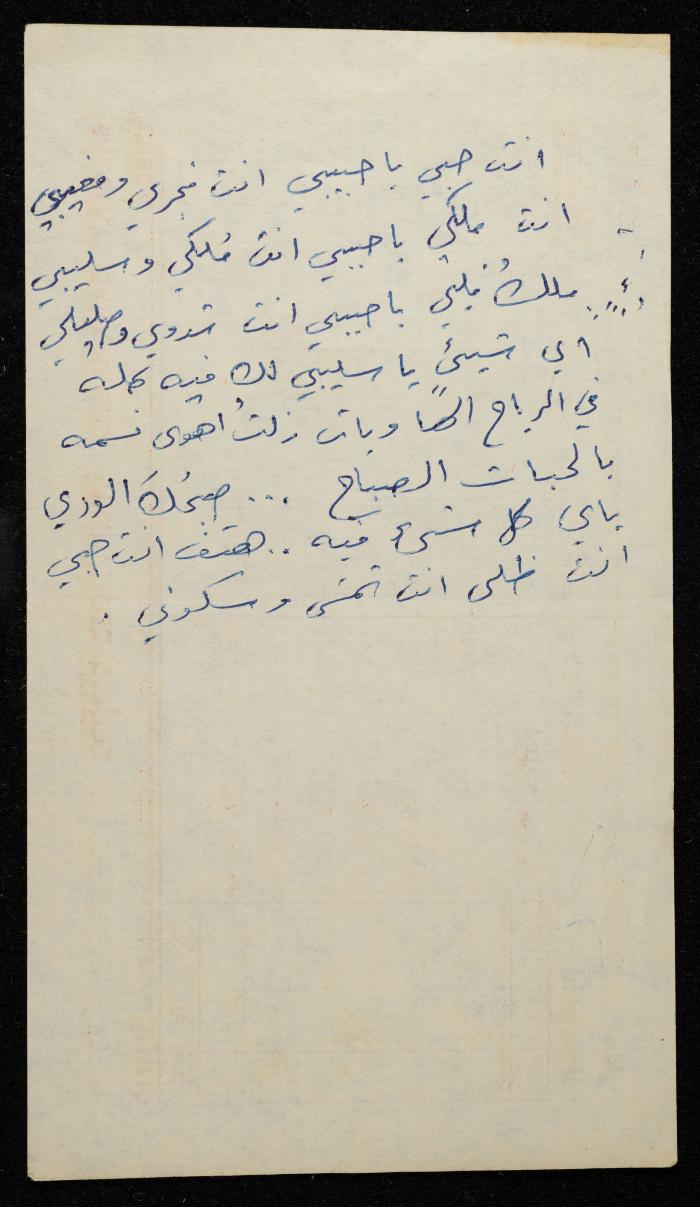 انت حبي يا حبيبي انت فجري ومغيبي
انت ملكي يا حبيبي انت مُلكي وسليبي
ملكُ قلبي يا حبيبي انت شدوي وصليلي
اي شيئ يا سليبي لك فيه
في الرياح وبات زلتُ اهوى نسمه
بالحبات الصباح ... صبحُك الوردي
ياي كل شيء فيه .. هتف انت حبي
انت ظلي انت وسكوني .